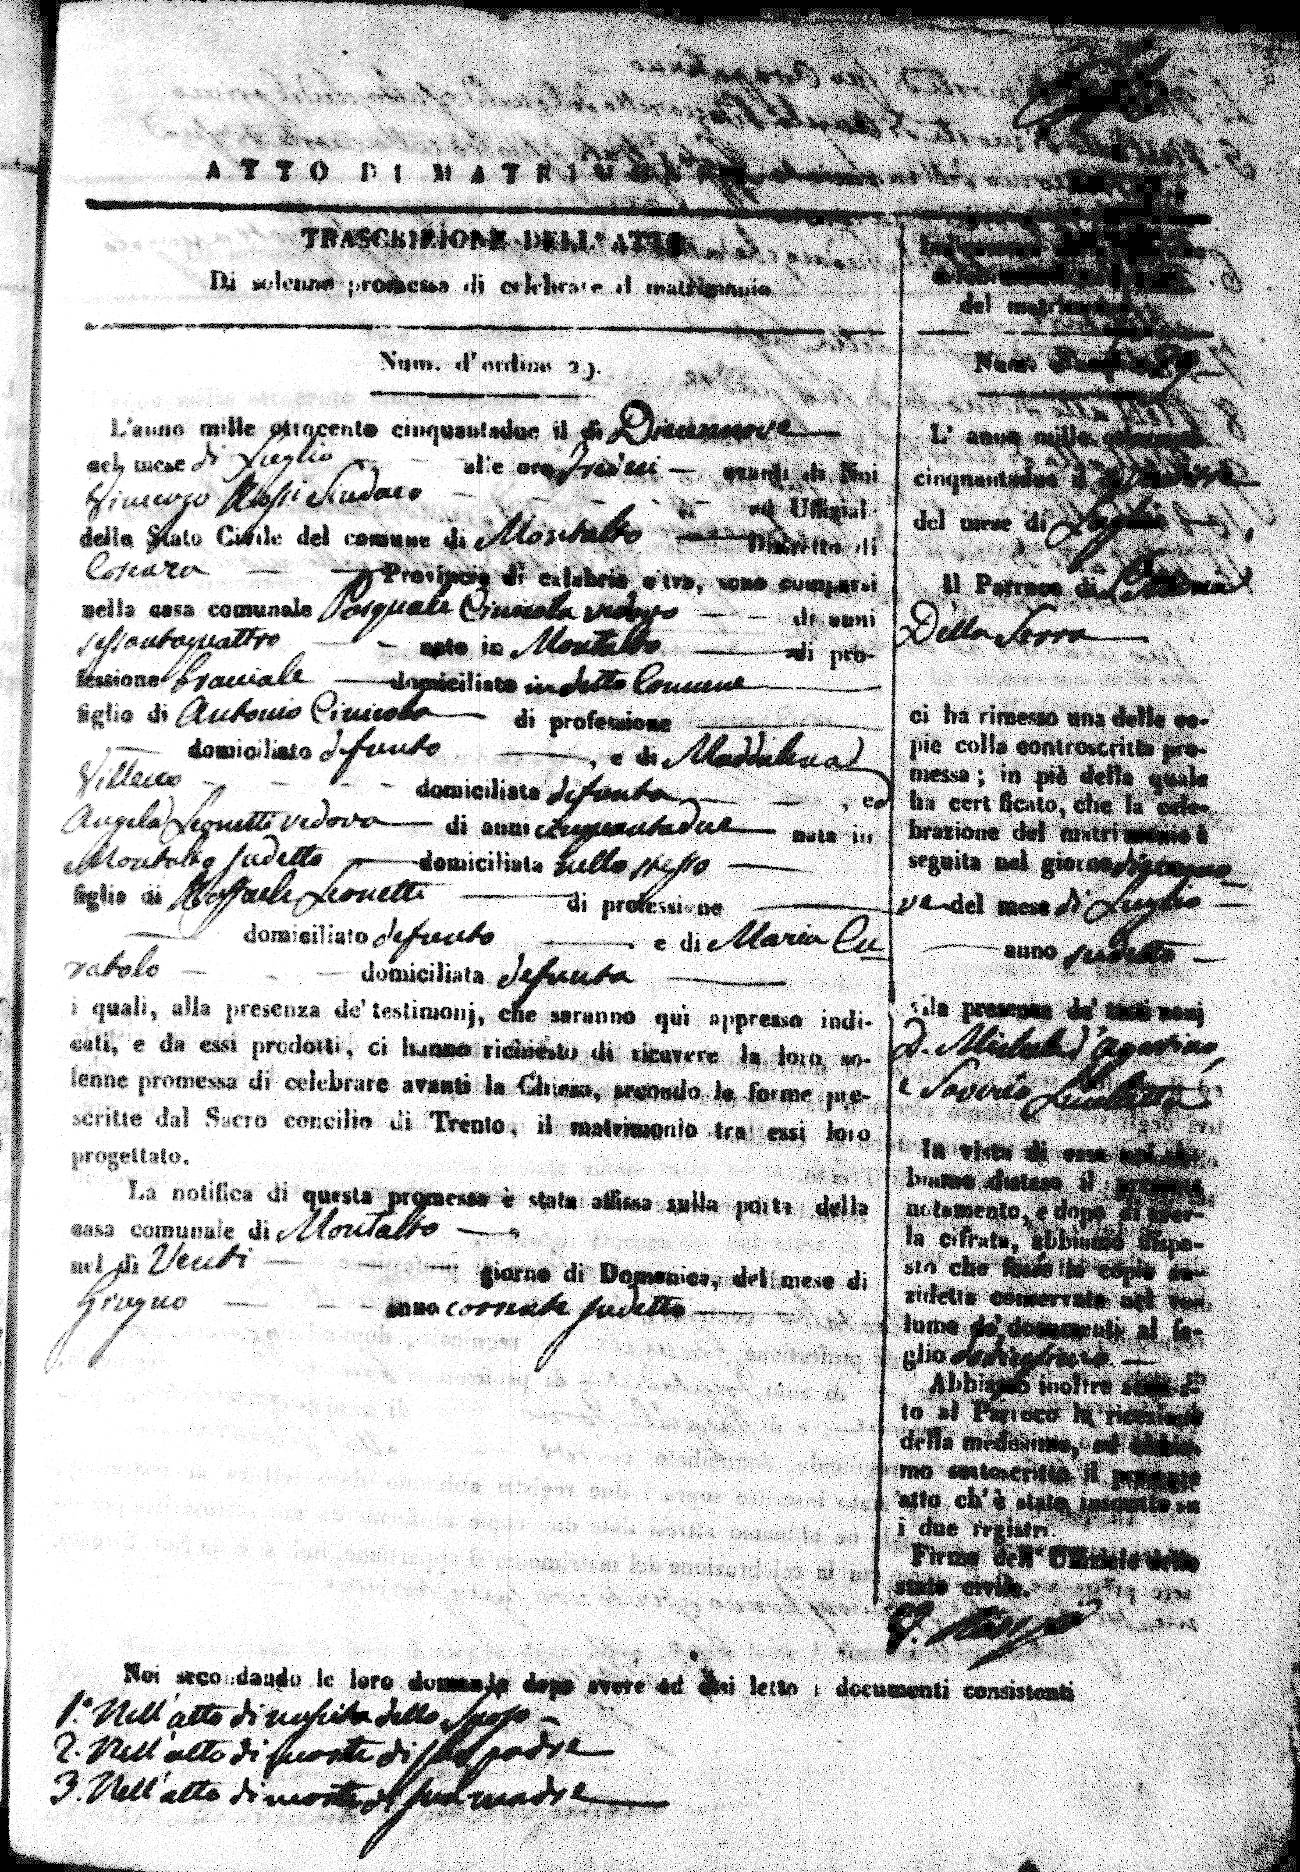 ATTO DI MATRIMONIO
TRASCRIZIONE DELL'ATTO
Di solenne promessa di celebrare il matrimonio
Num. d'ordine 29.
L'anno mille ottocento cinquantadue il di Diciannove
nel mese di Luglio alle ore Tredici avanti di Noi
Vincenzo Rossi Sindaco ed Uffizial
dello Stato Civile del comune di Montalto Distretto di
Cosenza Provincia di calabria citra, sono comparsi
nella casa comunale Pasquale Cinicola vedovo di anni
sessantaquattro nato in Montalto di pro-
fessione braciale domiciliato in detto Comune
figlio di Antonio Cinicola di professione
domiciliato defunto, e di Maddalena
domiciliata defunta, ed
Angela Lionetti vedova di anni cinquantadue nata in
Montalto sudetto domiciliata nello stesso
figlia di Raffaele Lionetti di professione
domiciliato defunto e di Maria Cu
ratolo domiciliata defunta
i quali, alla presenza de' testimonj, che saranno qui appresso indi-
cati, e da essi prodotti, ci hanno richiesto di ricevere la loro so-
lenne promessa di celebrare avanti la Chiesa, secondo le forme pre-
scritte dal Sacro concilio di Trento, il matrimonio tra essi loro
progettato.
La notifica di questa promessa è stata affissa sulla porta della
casa comunale di Montalto
nel di Venti giorno di Domenica, del mese di
Giugno anno corrente sudetto
del matrimonio
Num.
L' anno mille ottocento
cinquantadue il
del mese di Luglio
Il Parroco di
Della Serra
ci ha rimesso una delle co-
pie colla controscritta pro-
messa; in piè della quale
ha certificato, che la cele-
brazione del matrimonio è
seguita nel giorno dicianno
ve del mese di Luglio
anno sudetto
alla presenza de' testimonj
D. Michele d'Agostino,
e Saverio
In vista di esso noi ab-
biamo disteso il presente
notamento, e dopo di aver-
la cifrata, abbiamo dispo-
sto che fosse la copia su-
ridetta conservata nel vo-
lume de' documenti al fo-
glio
Abbiamo inoltre accusa-
to al Parroco la ricezione
della medesima, ed abbia-
mo sottoscritto il presente
atto ch'è stato inscritto su
i due registri.
Firma dell' Uffiziale dello
stato civile.
V. Rossi
Noi secondando le loro domande dopo avere ad essi letto i documenti consistenti
1.° Nell'atto di nascita dello Sposo
2. Nell'atto di morte di suo padre
3. Nell'atto di morte di sua madre